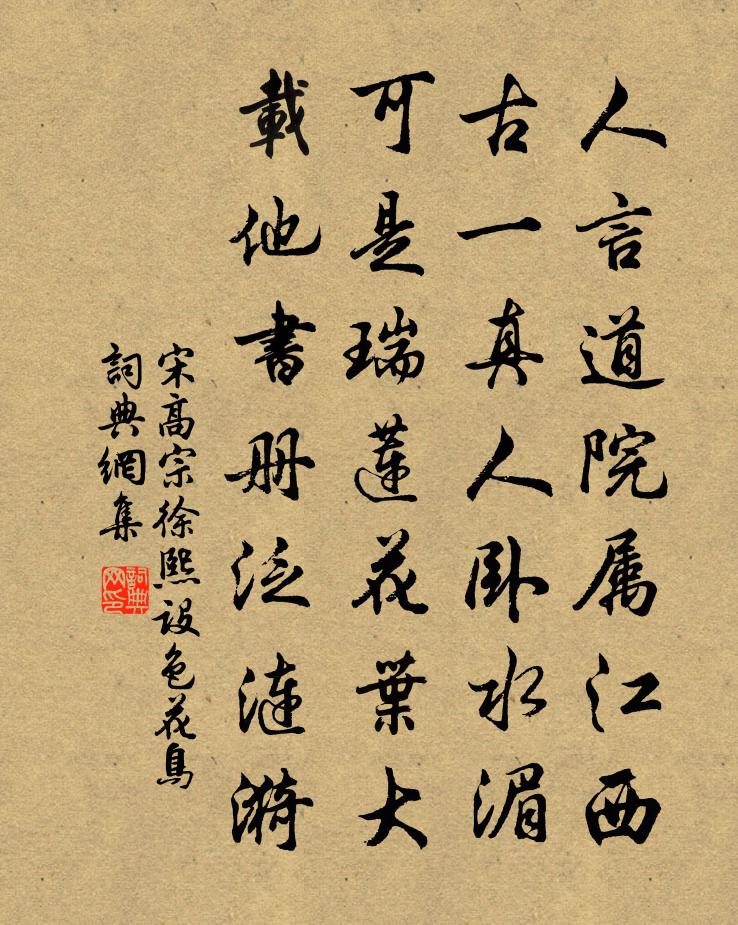 人言道院属江西
古一真人卧水湄
可是瑞蓮花葉大
載他書册泛漣漪
宋高宗徐熙設色花鳥
詞典網集
詞典网印